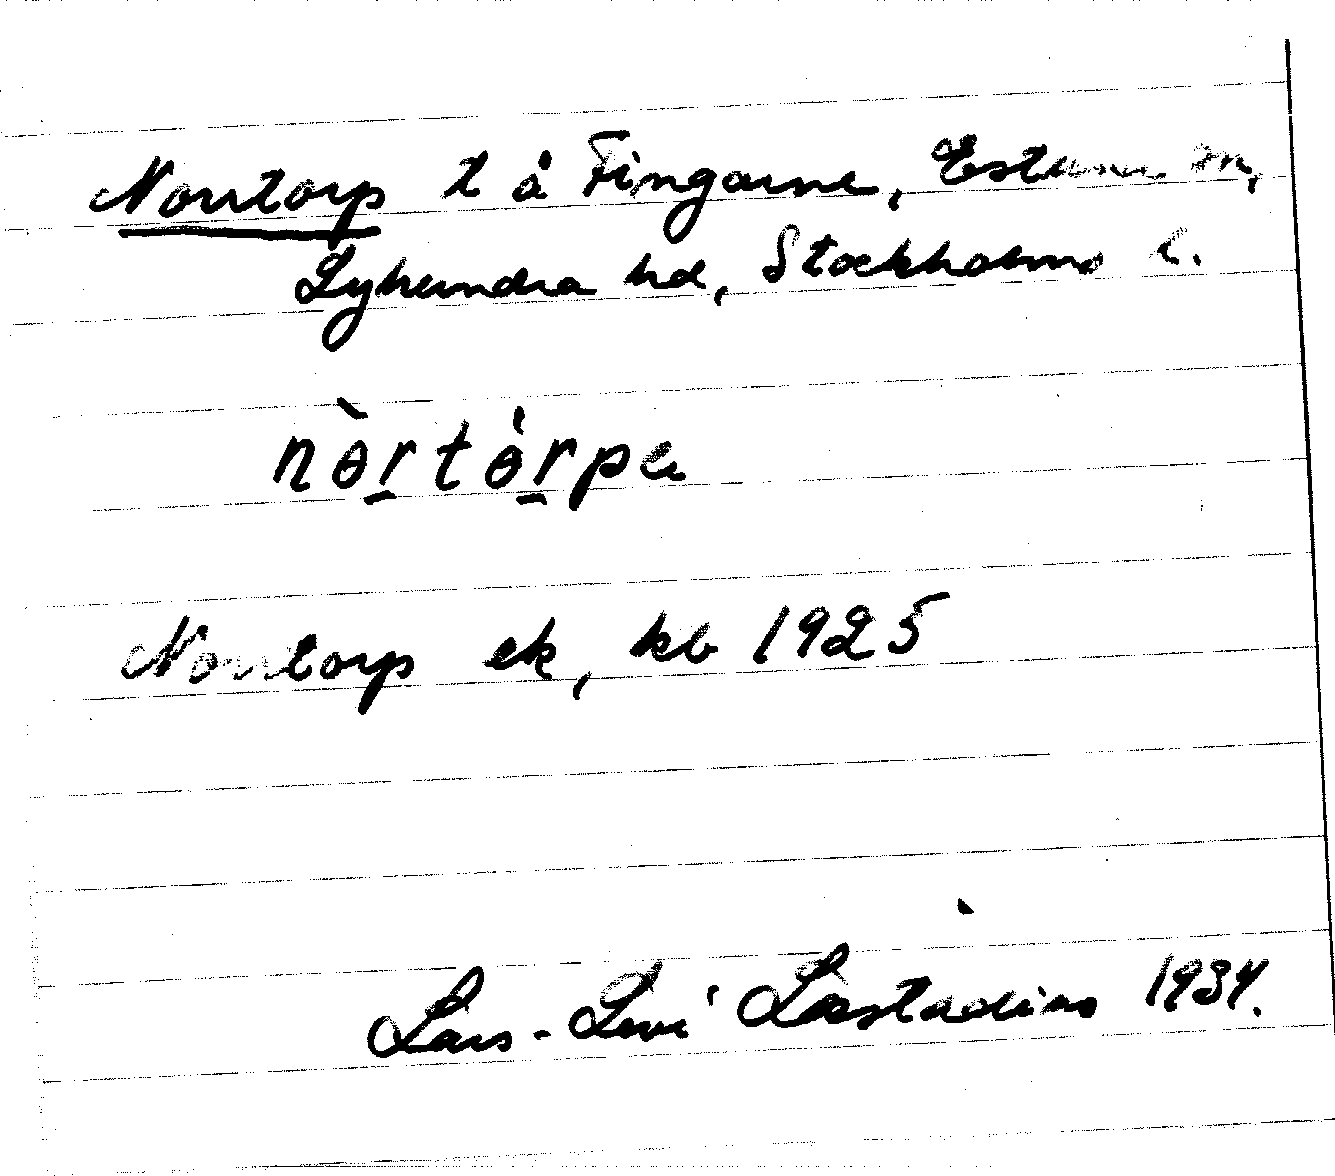 Norrtorp t å Fingarne, Estuna sn,
Lyhundra hd, Stockholms l.
nɵ̀r̠tɵ̇r̠pɐ
Norrtorp ek, kb 1925
Lars-Levi Læstadius 1934.